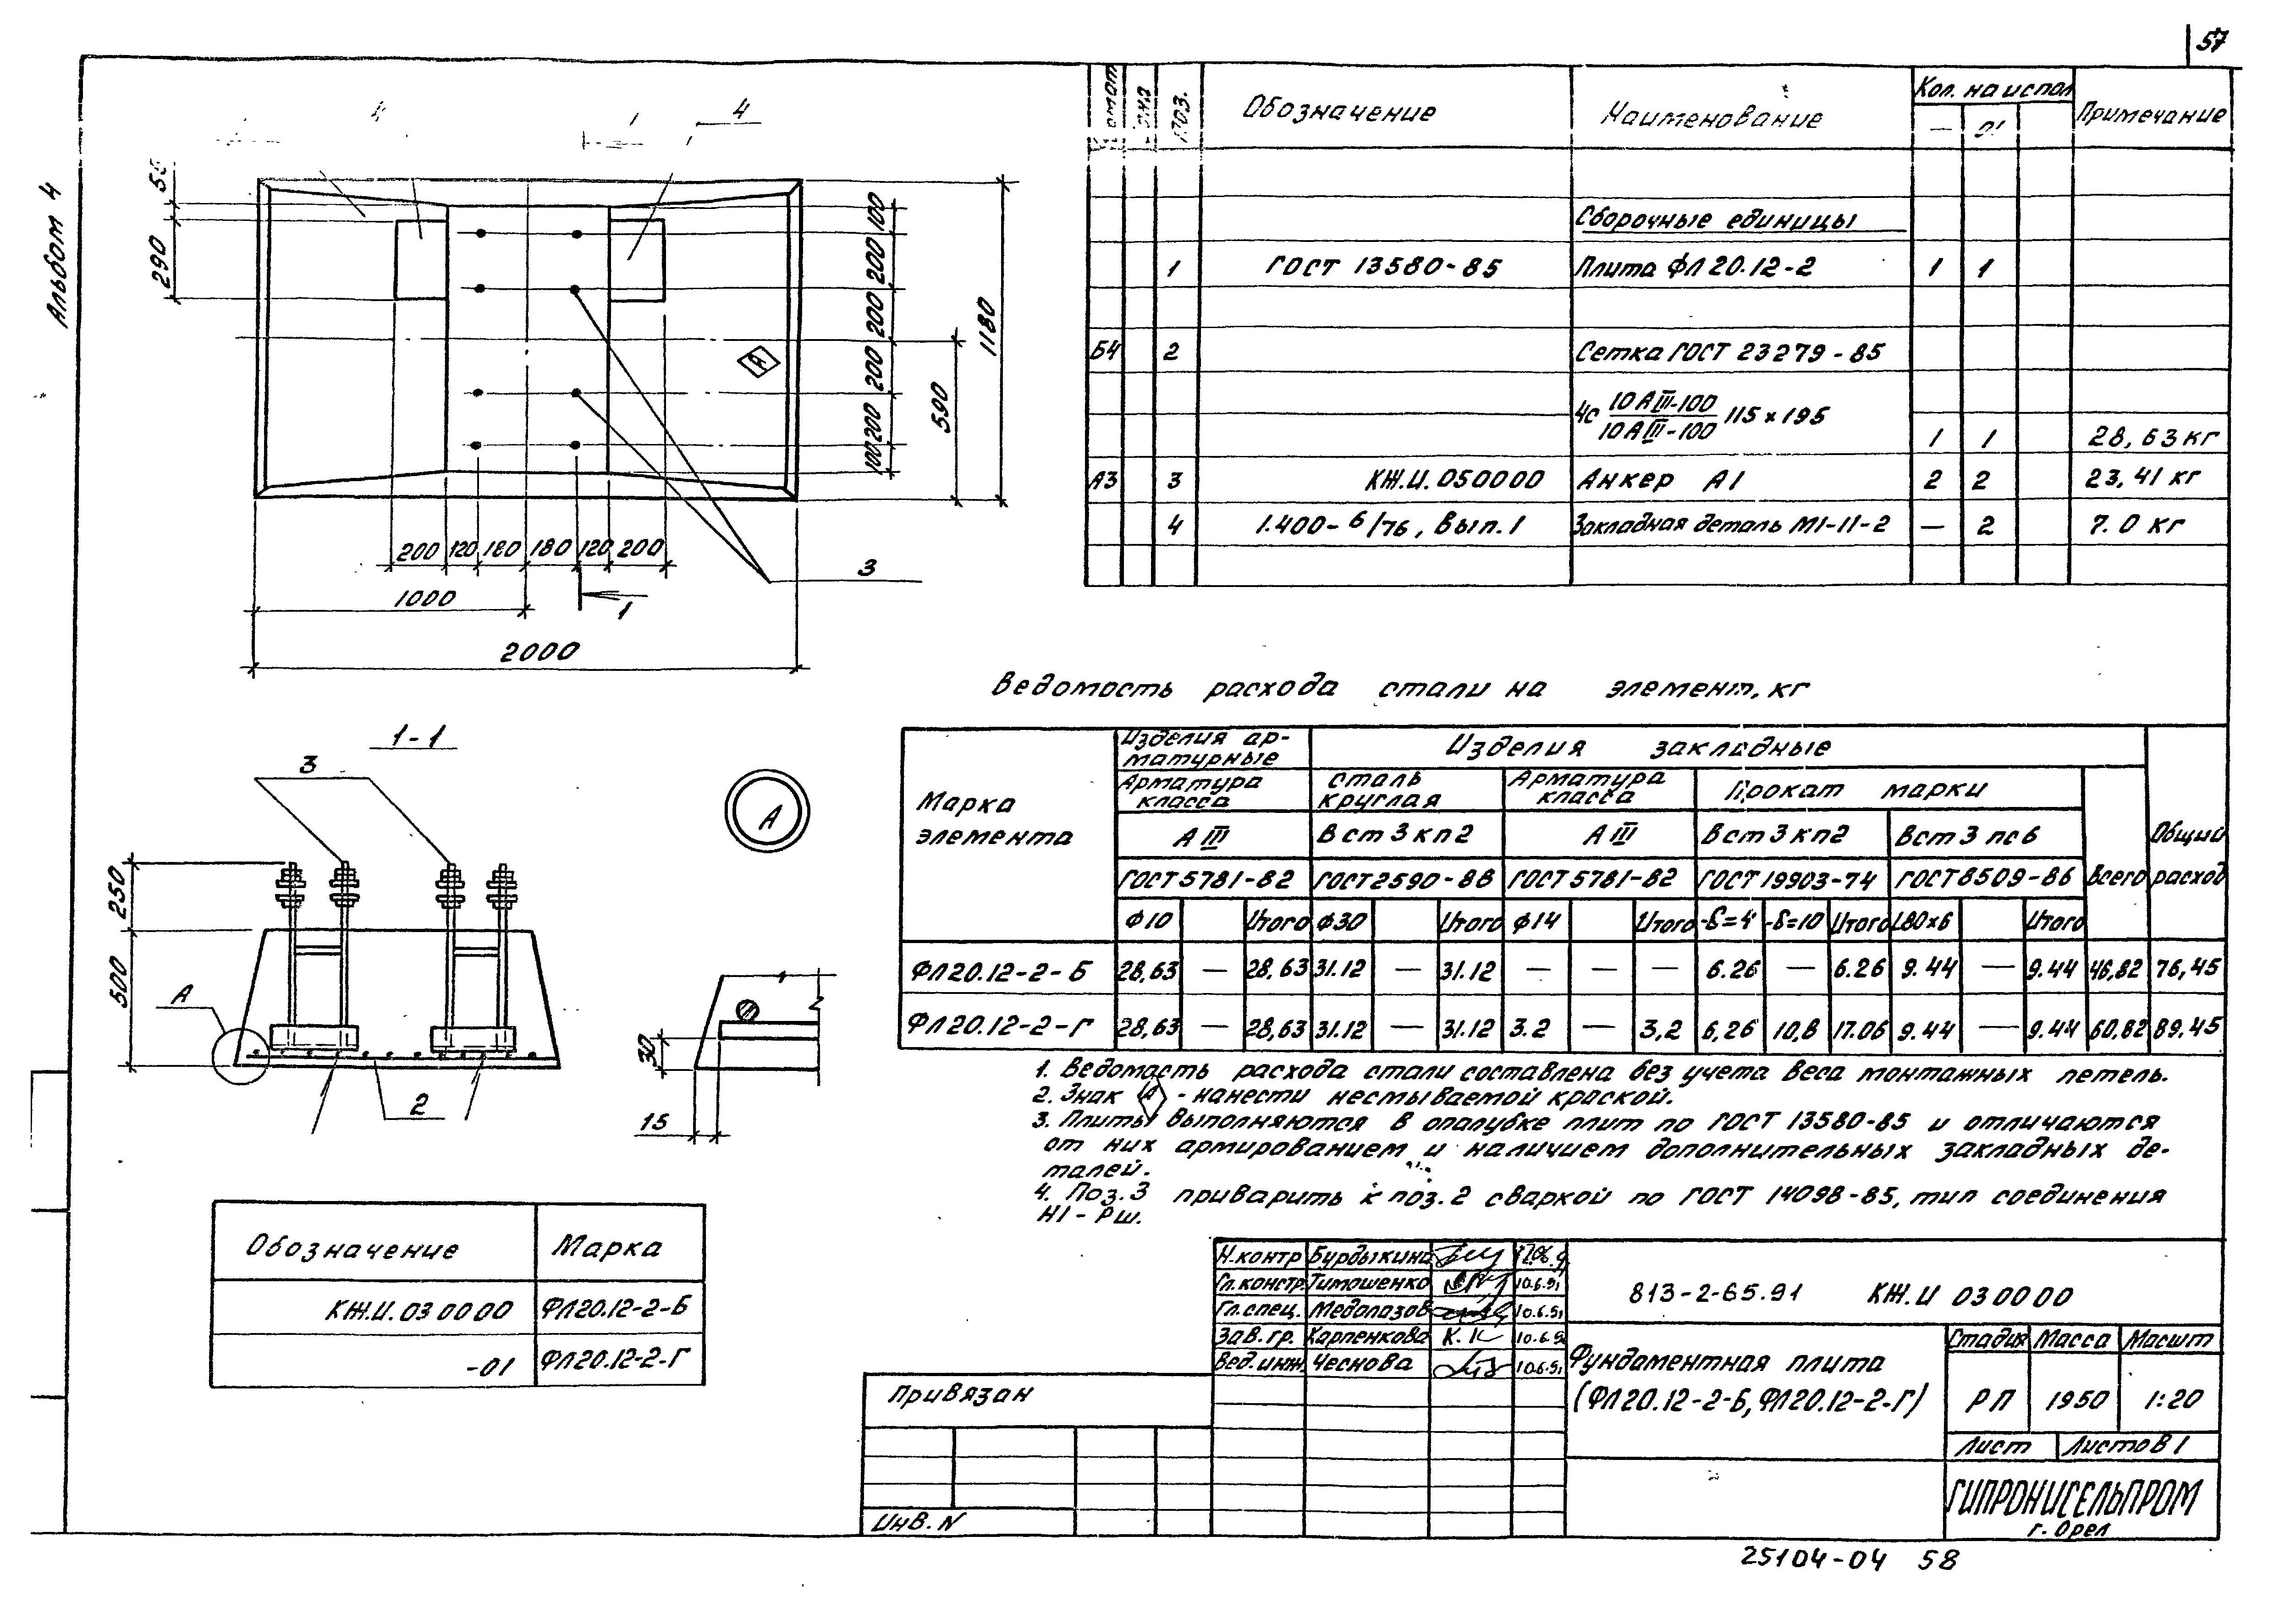 57
Альбом 4
4
4
55
290
100
200
200
200
200
100
590
1180
А
200 120 180 180 120 200
3
1000
1
2000
Поз.
Обозначение
Наименование
Кол. на испол
Примечание
— 01
Сборочные единицы
1 ГОСТ 13580-85 Плита ФЛ 20.12-2 1 1
Б4 2 Сетка ГОСТ 23279-85
4С 10АIII-100 115×195
10АIII-100
1 1 28,63 кг
А3 3 КЖ.И.050000 Анкер А1 2 2 23,41 кг
4 1.400-6/76, Вып.1 Закладная деталь М1-11-2 — 2 7.0 кг
Ведомость расхода стали на элемент, кг
Марка элемента
Изделия арматурные
Изделия закладные
Арматура класса
Сталь круглая
Арматура класса
Прокат марки
Всего
Общий расход
А III Вст3кп2 А III Вст3кп2 Вст3пс6
ГОСТ 5781-82 ГОСТ 2590-88 ГОСТ 5781-82 ГОСТ 19903-74 ГОСТ 8509-86
Ф10 Итого Ф30 Итого Ф14 Итого -δ=4 -δ=10 Итого L80×6 Итого
ФЛ20.12-2-Б 28,63 — 28,63 31.12 — 31.12 — — — 6.26 — 6.26 9.44 — 9.44 46,82 76,45
ФЛ20.12-2-Г 28,63 — 28,63 31.12 — 31.12 3.2 — 3,2 6,26 10,8 17.06 9.44 — 9.44 60,82 89.45
1. Ведомость расхода стали составлена без учета веса монтажных петель.
2. Знак А - нанести несмываемой краской.
3. Плиты выполняются в опалубке плит по ГОСТ 13580-85 и отличаются
от них армированием и наличием дополнительных закладных де-
талей.
4. Поз.3 приварить к поз.2 сваркой по ГОСТ 14098-85, тип соединения
Н1-Рш.
1-1
3
А
250
500
А
2
30
15
Обозначение Марка
КЖ.И.03 0000 ФЛ20.12-2-Б
-01 ФЛ20.12-2-Г
Н.контр Бурдыкина
Гл.констр Тимошенко 10.6.91
Гл.спец. Медолазов 10.6.91
Зав.гр. Карпенкова К.К 10.6.91
Вед.инж. Чеснова 10.6.91
813-2-65.91 КЖ.И 030000
Фундаментная плита
(ФЛ20.12-2-Б, ФЛ20.12-2-Г)
Стадия Масса Масшт
РП 1950 1:20
Лист Листов 1
ГИПРОНИСЕЛЬПРОМ
г. Орел
Привязан
Инв. N
25104-04 58